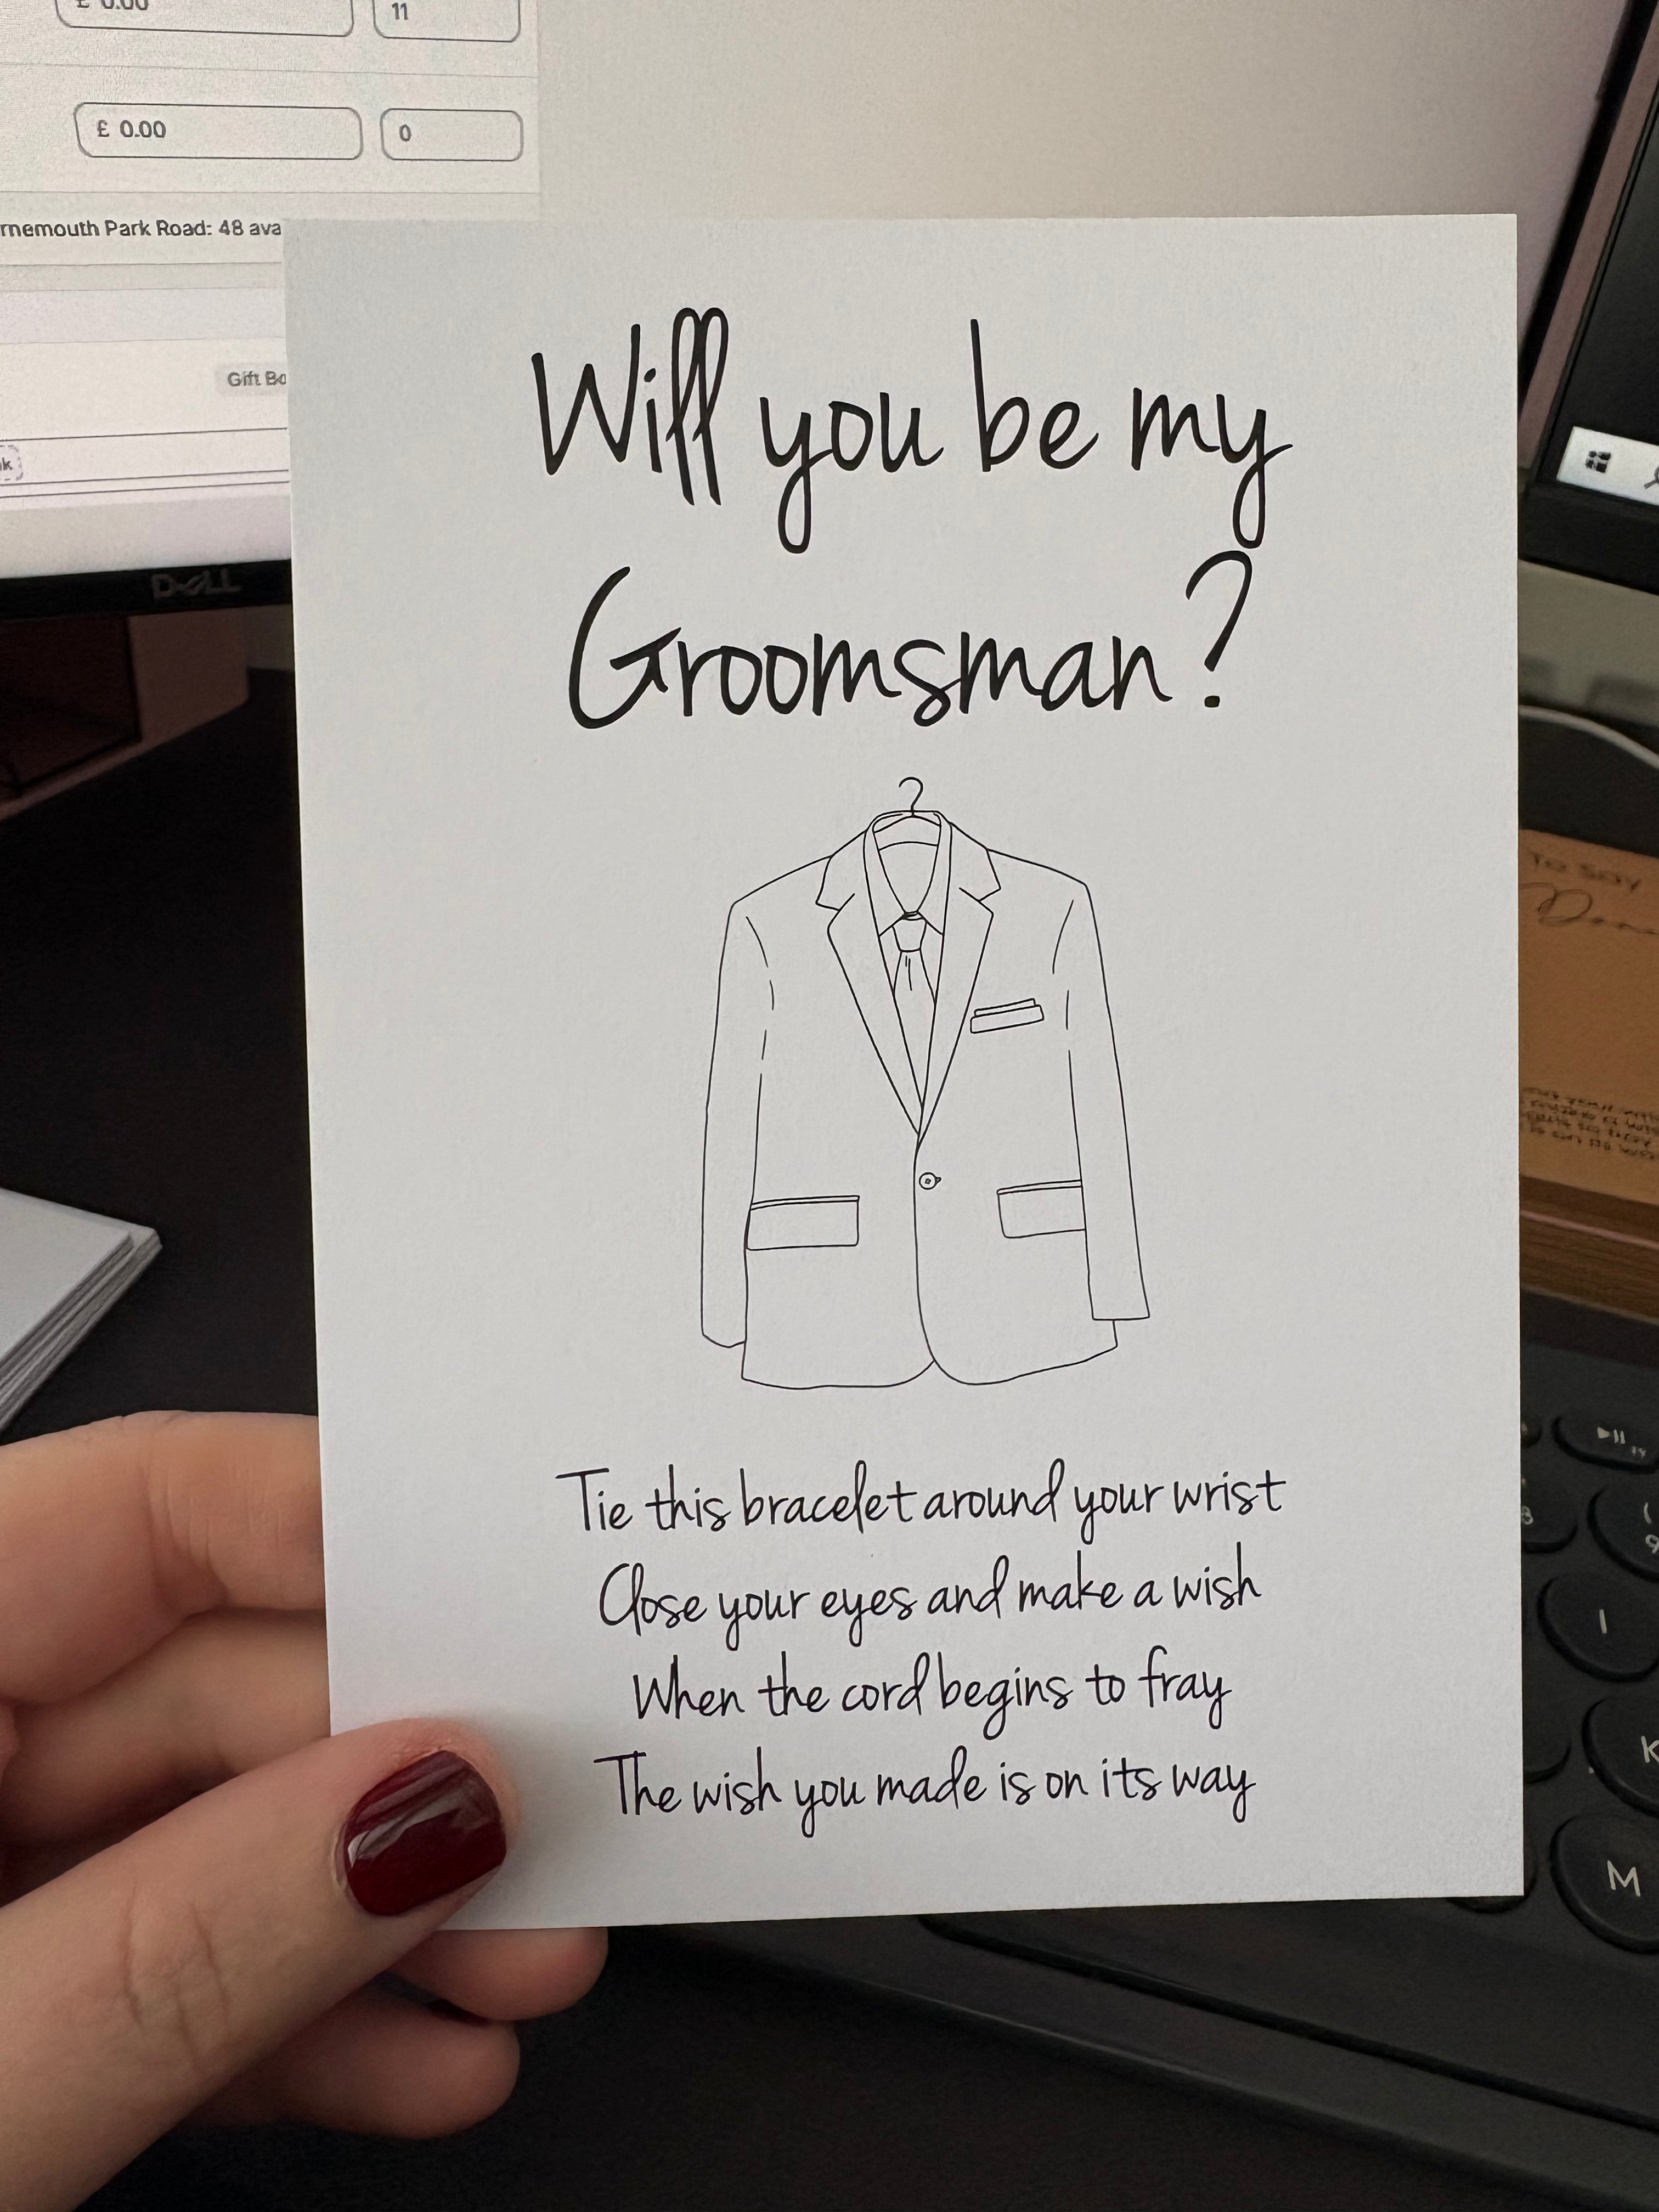 £ 0.00
11
£ 0.00
0
Park Road: 48
Gift
DELL
Will you be my
Groomsman?
Tie this bracelet around your wrist
Close your eyes and make a wish
When the cord begins to fray
The wish you made is on its way
TO SAY
I
K
M